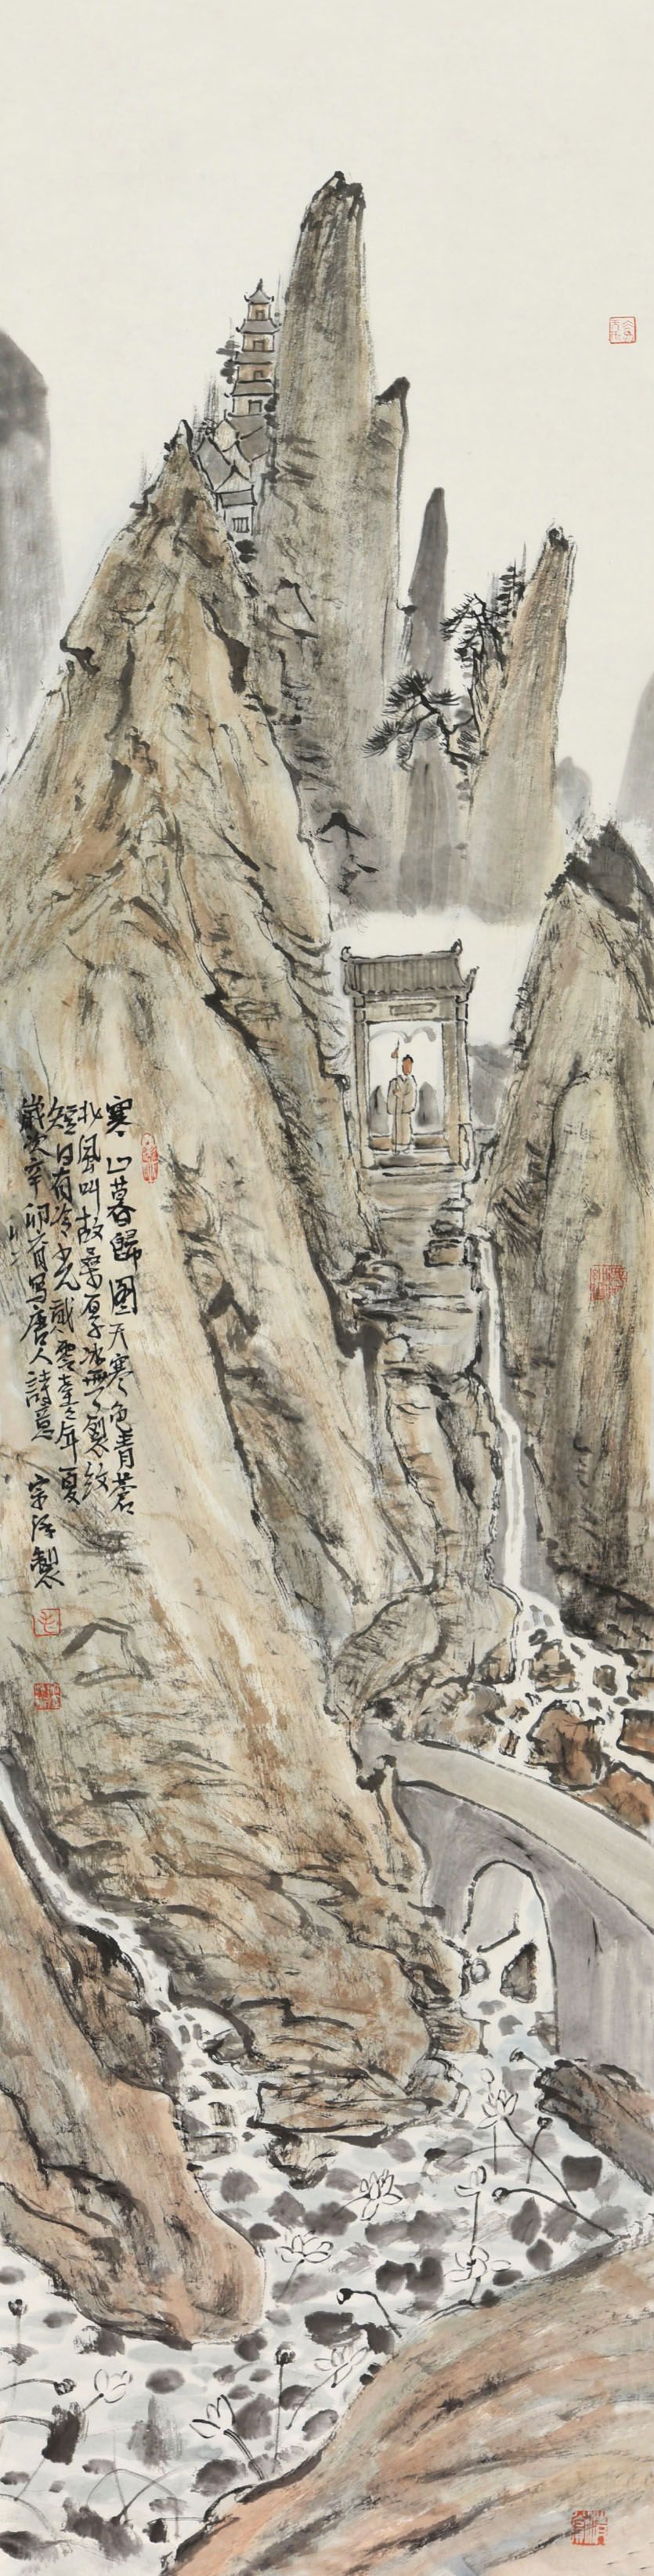 寒山暮歸圖天寒色青蒼
北風叫枯桑厚冰無裂紋
短日有冷光貳零壹壹年夏
歲次辛卯寫唐人詩意
製